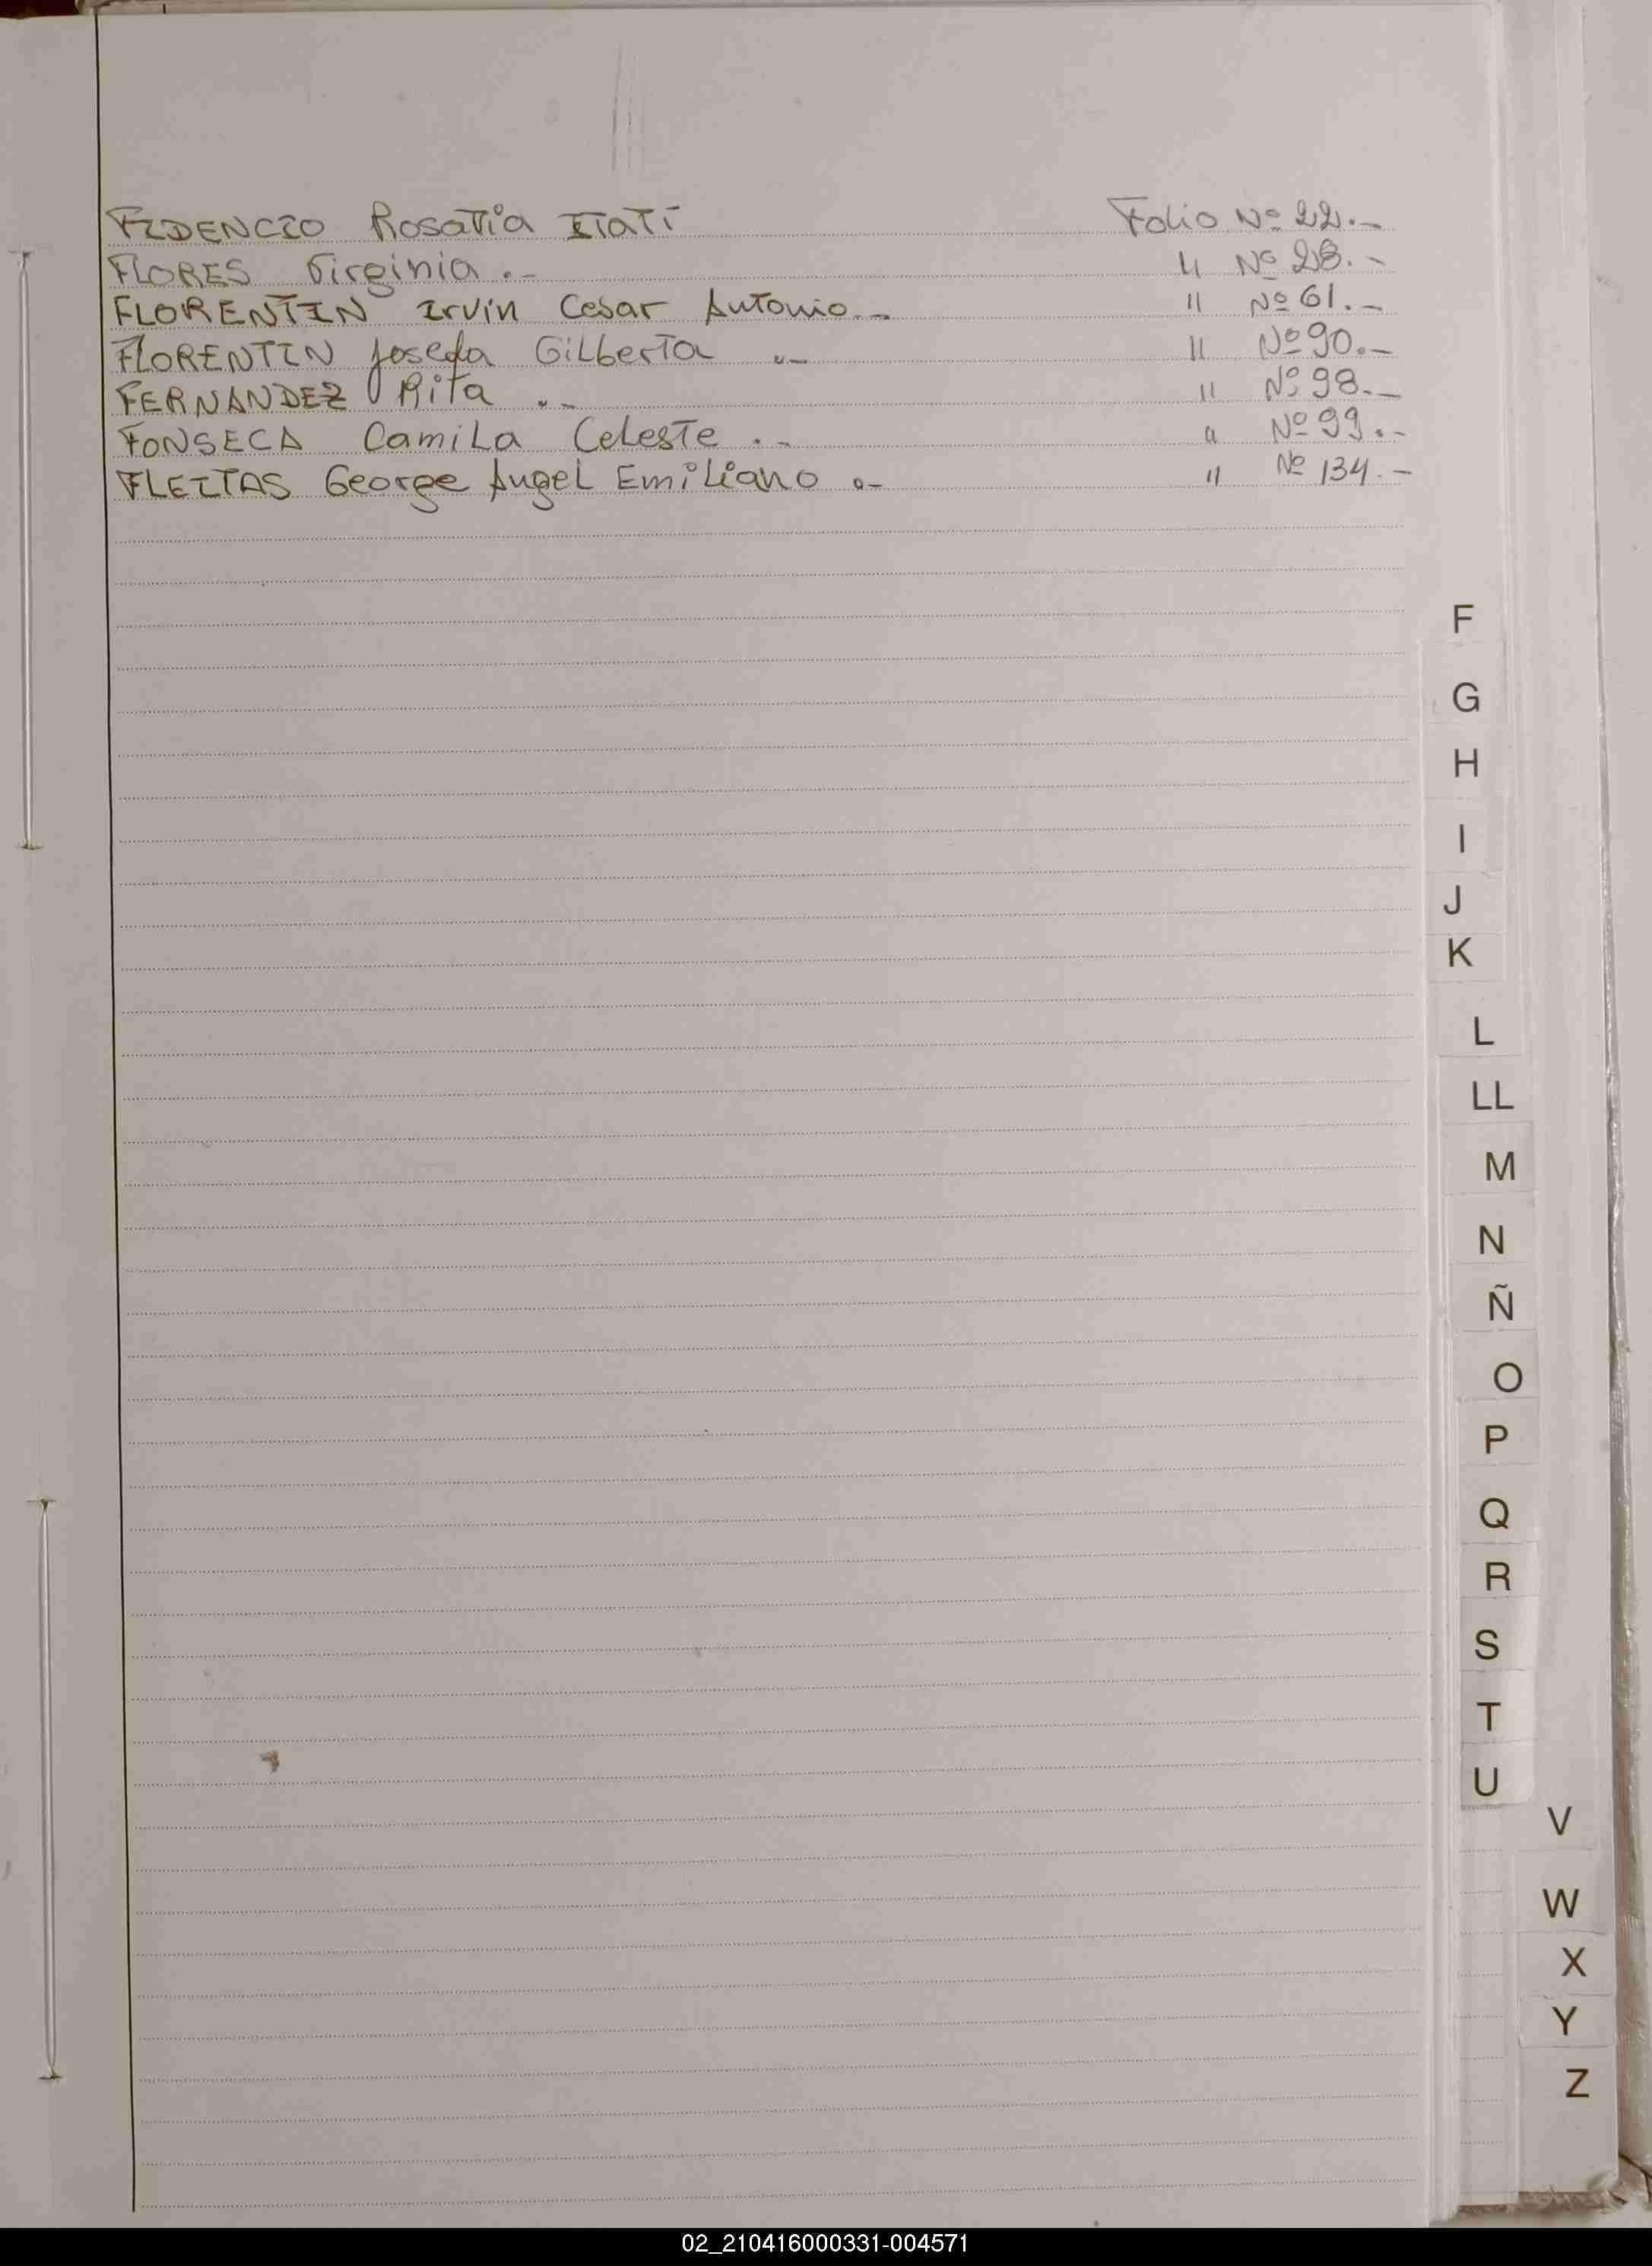 FIDENCIO Rosalia ITATÍ Folio Nº 22.-
FLORES Virginia .- " Nº 28.-
FLORENTIN Irvin Cesar Antonio.- " Nº 61.-
FLORENTIN Josefa Gilberta .- " Nº 90.-
FERNANDEZ Rita .- " Nº 98.-
FONSECA Camila Celeste .- " Nº 99.-
FLEITAS George Angel Emiliano .- " Nº 134.-
F
G
H
I
J
K
L
LL
M
N
Ñ
O
P
Q
R
S
T
U
V
W
X
Y
Z
02_210416000331-004571